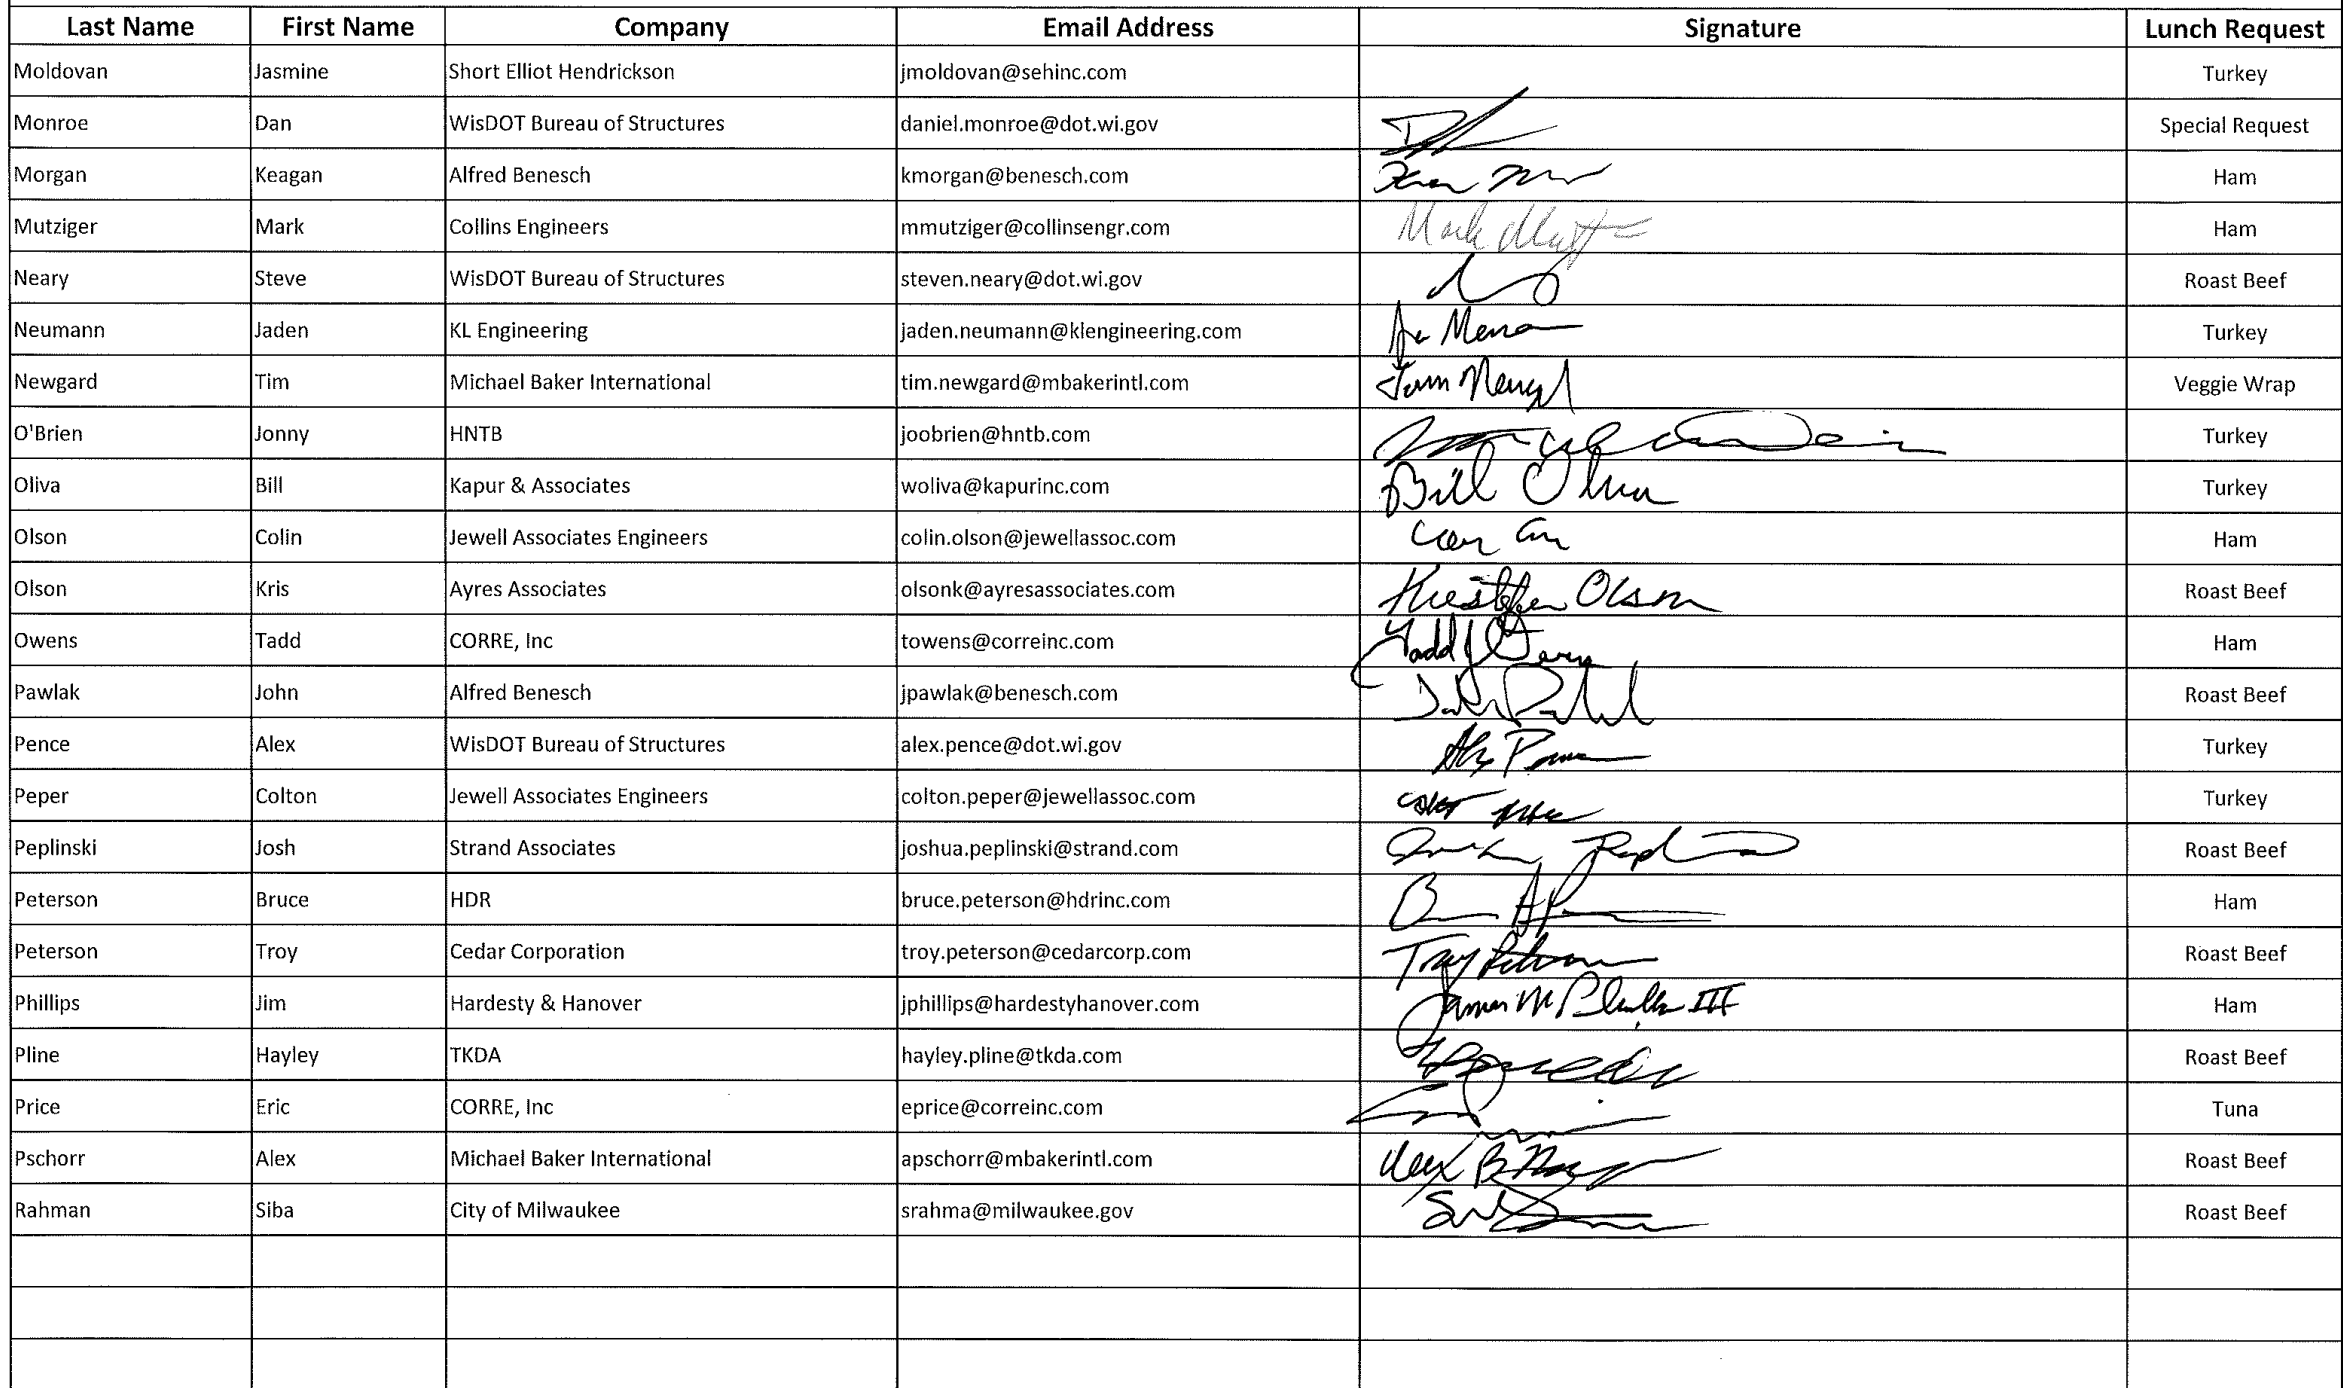 Last Name First Name Company Email Address Signature Lunch Request
Moldovan Jasmine Short Elliot Hendrickson jmoldovan@sehinc.com Turkey
Monroe Dan WisDOT Bureau of Structures daniel.monroe@dot.wi.gov Special Request
Morgan Keagan Alfred Benesch kmorgan@benesch.com Ham
Mutziger Mark Collins Engineers mmutziger@collinsengr.com Mark Ham
Neary Steve WisDOT Bureau of Structures steven.neary@dot.wi.gov Roast Beef
Neumann Jaden KL Engineering jaden.neumann@klengineering.com Turkey
Newgard Tim Michael Baker International tim.newgard@mbakerintl.com Veggie Wrap
O'Brien Jonny HNTB joobrien@hntb.com Turkey
Oliva Bill Kapur & Associates woliva@kapurinc.com Bill Oliva Turkey
Olson Colin Jewell Associates Engineers colin.olson@jewellassoc.com Ham
Olson Kris Ayres Associates olsonk@ayresassociates.com Olson Roast Beef
Owens Tadd CORRE, Inc towens@correinc.com Tadd J Owens Ham
Pawlak John Alfred Benesch jpawlak@benesch.com Roast Beef
Pence Alex WisDOT Bureau of Structures alex.pence@dot.wi.gov Turkey
Peper Colton Jewell Associates Engineers colton.peper@jewellassoc.com Turkey
Peplinski Josh Strand Associates joshua.peplinski@strand.com Roast Beef
Peterson Bruce HDR bruce.peterson@hdrinc.com Ham
Peterson Troy Cedar Corporation troy.peterson@cedarcorp.com Troy Peterson Roast Beef
Phillips Jim Hardesty & Hanover jphillips@hardestyhanover.com James M Phillips III Ham
Pline Hayley TKDA hayley.pline@tkda.com Roast Beef
Price Eric CORRE, Inc eprice@correinc.com Tuna
Pschorr Alex Michael Baker International apschorr@mbakerintl.com Alex Roast Beef
Rahman Siba City of Milwaukee srahma@milwaukee.gov Roast Beef